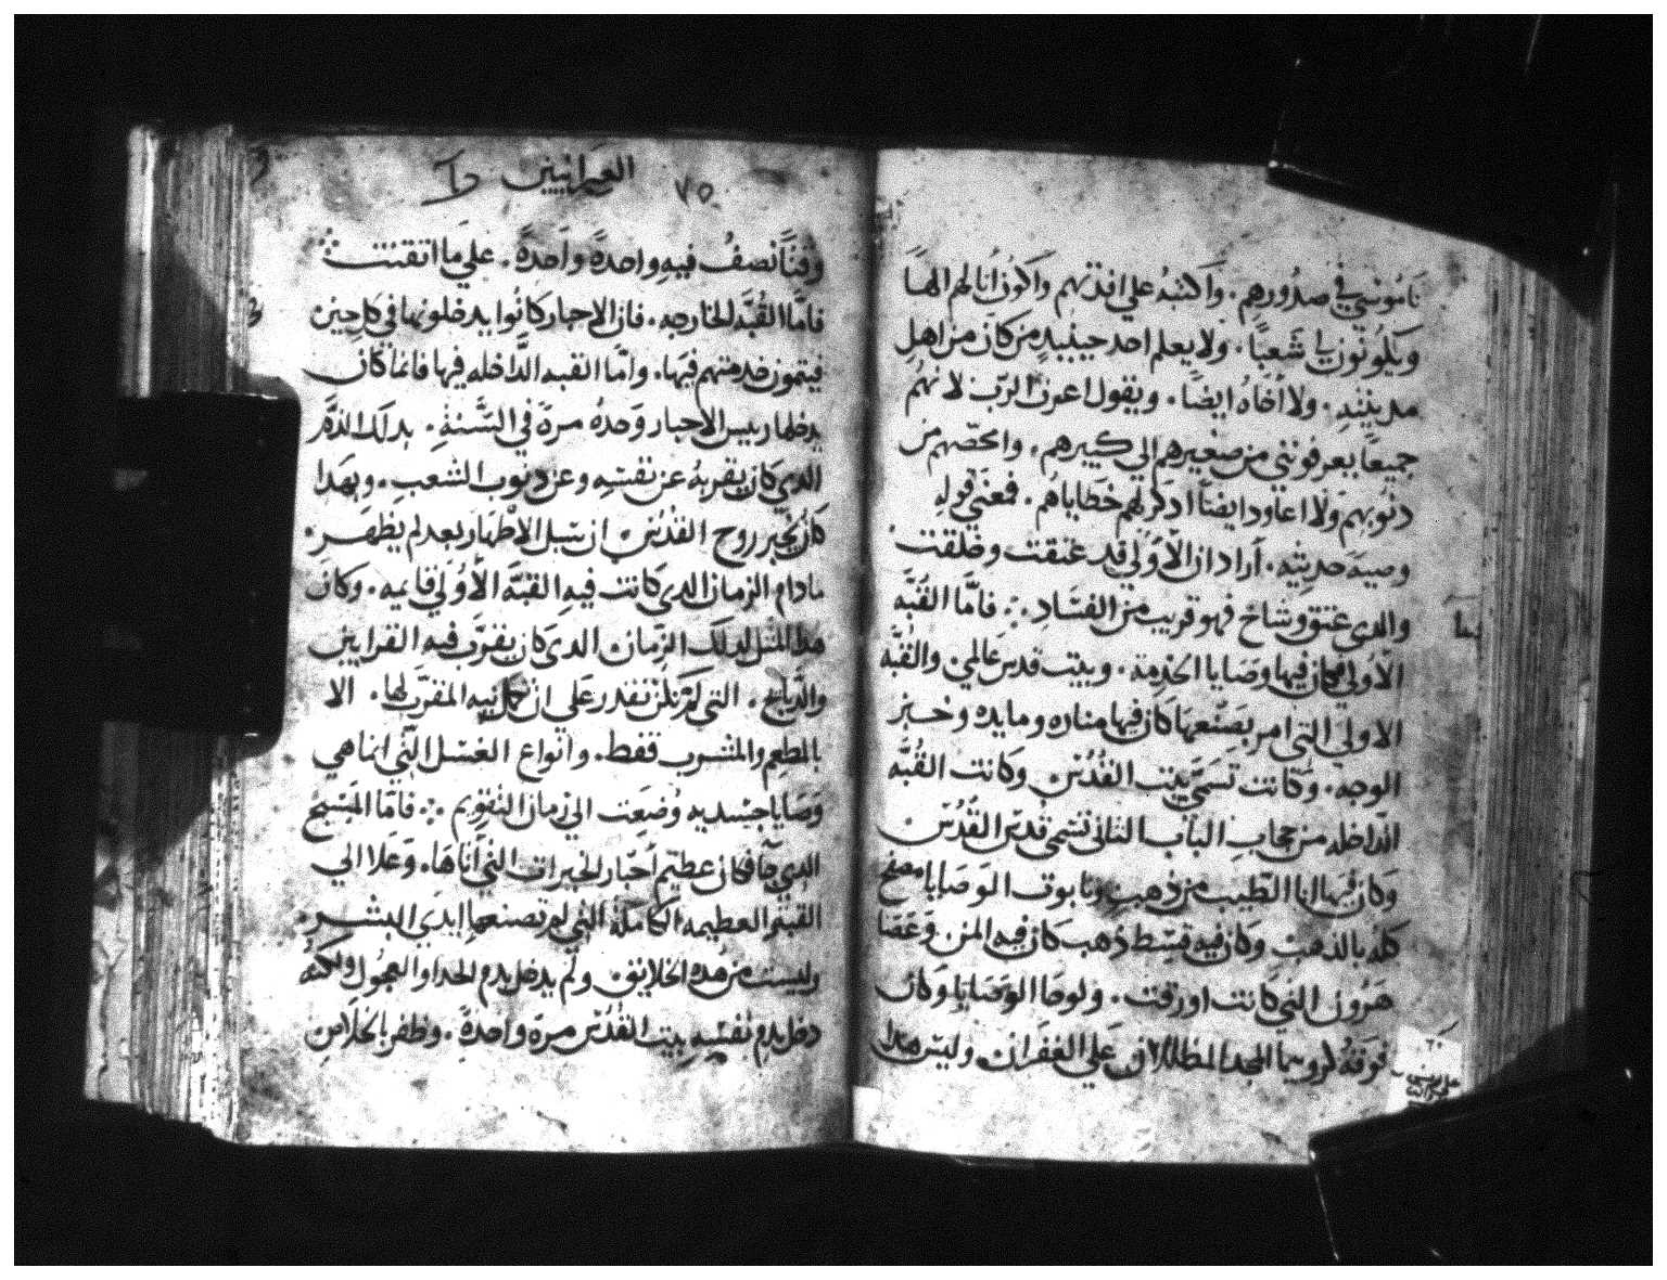 ناموسي في صدورهم. واكتبه علي افدتهم واكون انا لهم الها
ويكونون لي شعبا. ولا يعلم احد حينيد من كان من اهل
مدينته. ولا أخاه ايضا. ويقول اعرف الرب لانهم
جميعا يعرفونني من صغيرهم الي كبيرهم. وامحصهم من
دنوبهم ولا اعاود ايضا ادكر لهم خطاياهم. فمعني قوله
وصيه حديثه. أراد ان الأولي قد عتقت وخلقت
والدي عتق وشاخ فهو قريب من الفساد ⁘ فاما القبه
الأولي فكان فيها وصايا الخدمة. وبيت قدس عالمي والقبه
الاولي التي امر بصنعها كان فيها مناره ومايده وخبز
الوجه. وكانت تسمي بيت القدس وكانت القبه
الداخله من حجاب الباب الثاني تسمي قدس القدس.
وكان فيها انا الطيب من دهب وتابوت الوصايا مصفح
كله بالدهب وكان فيه قسط دهب كان فيه المن. وعصا
هرون التي كانت اورقت. ولوحا الوصايا وكان
فوقه كروبيما المجد المظللان علي الغفران وليس هدا
٧٥
العبرانيين
وقتا نصف فيه واحدة واحدة. علي ما اتقنت
فاما القبه الخارجه. فان الاحبار كانوا يدخلونها في كل حين
فيتمون خدمتهم فيها. واما القبه الداخله فيها فانما كان
يدخلها رييس الاحبار وحده مرة في السنة. بدلك الدم
الدي كان يقربه عن نفسه وعن دنوب الشعب. وبهدا
كان يخبر روح القدس ان سبل الاطهار بعد لم يظهر.
مادام الزمان الدي كانت فيه القبه الأولي قايمه. وكان
هدا المثل لدلك الزمان الدي كان يقرب فيه القرابين
والدبايح. التي لم تكن تقدر علي ان تكمل نيه المقرب لها. الا
بالمطعم والمشرب فقط. وانواع الغسل التي انما هي
وصايا جسديه وضعت الي زمان التقويم ⁘ فاما المسيح
الدي جا فكان عظيم أحبار الخيرات التي أتاها. وعلا الي
القبه العظيمه الكاملة التي لم تصنعها ايدي البشر.
وليست من هده الخلايق. ولم يدخل بدم الجدا والعجول ولكنه
دخل بدم نفسه بيت القدس مرة واحدة. وظفر بالخلاص